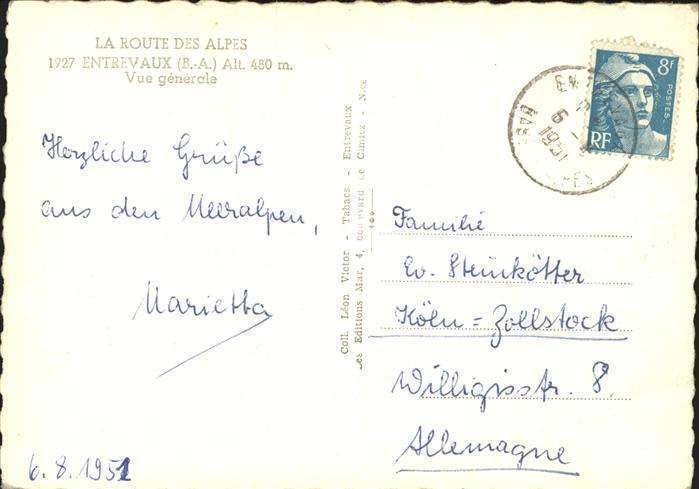 LA ROUTE DES ALPES
1927 ENTREVAUX (B.-A.) Alt. 480 m.
Vue générale
Herzliche Grüße
aus den Meeralpen,
Marietta
6.8.1951
Coll. Léon Victor - Tabacs - Entrevaux
Les Editions Mar, 4, Boulevard de Cimiez - Nice
8F
POSTES
RF
6
1951
Familie
Ev. Steinkötter
Köln=Zollstock
Willigisstr. 8.
Allemagne